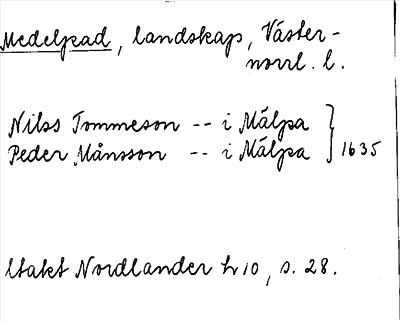 Medelpad, landskap, Väster-
norrl. l.
Nilss Tommeson -- i Mälpa } 1635
Peder Månsson -- i Mälpa
Utakt Nordlander h 10, s. 28.